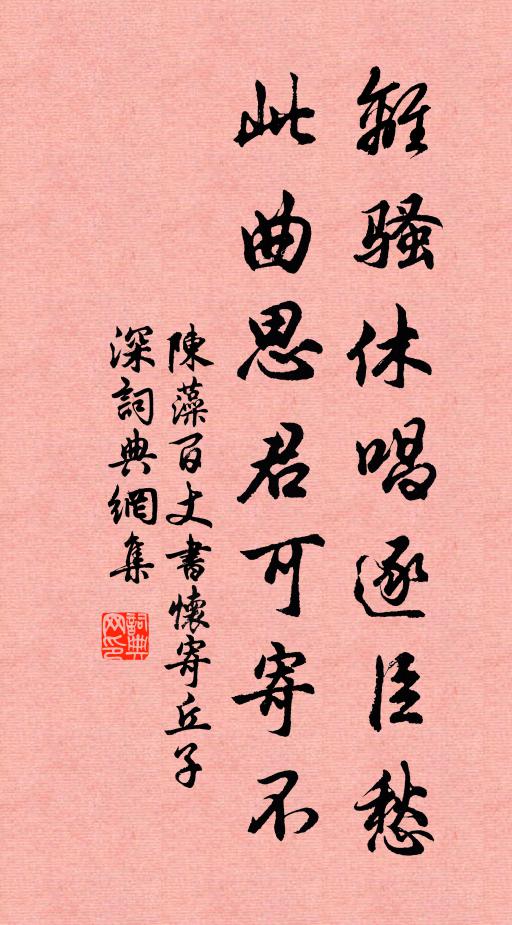 離騷休唱逐臣愁
此曲思君可寄不
陳藻百丈書懷寄丘子
深詞典網集
詞典网印